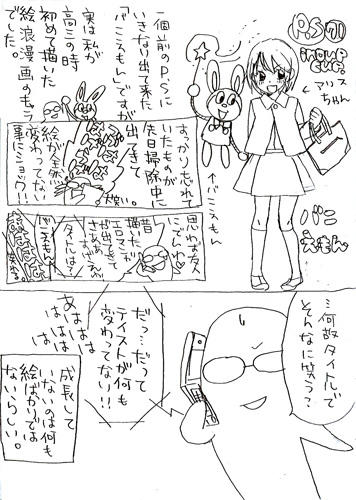 P.S 71
IN OUR CUP.
←アリスちゃん
←バニえもん
バニえもん
一個前のP.Sに
いきなり出て来た
「バニえもん」ですが
実は私が
高三の時
初めて描いた
絵浪漫画のキャラ
でした。
すっかり忘れて
いたものが
先日掃除中に
出てきて
絵が全然
変わってない
事にショック!!
思わず友人
にでんわ
昔
描いた
エロマンガ
が出てきて
さあ
タイトルは?
バニえもん
…何故タイトルで
そんなに笑う?
だっ…だって
テイストが何も
変わってない!!
あはは
はは
はは
成長して
いないのは何も
絵ばかりでは
ないらしい。